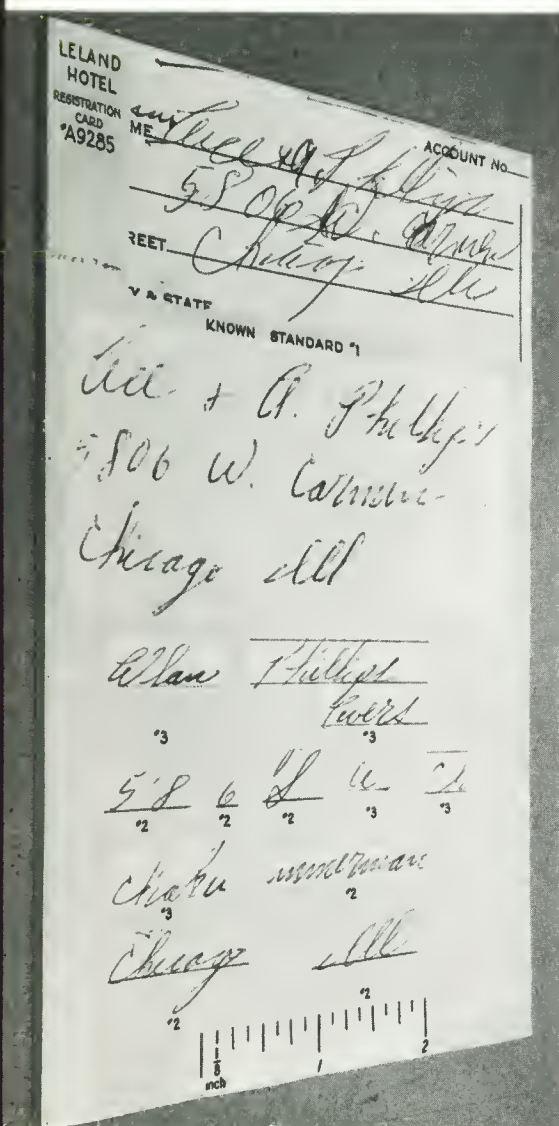 LELAND
HOTEL
REGISTRATION
CARD
*A9285
ME
ACCOUNT No.
A. Phillips
5806 W. Carmen
REET
Chicago Ill
Y & STATE
KNOWN STANDARD *1
Lee & A. Phillips
5806 W. Carmen
Chicago Ill
Allan Phillips
*3
Ewers
*3
58 6 W
*2 *2 *2 *3 *3
immerman
*3 *2
Chicago Ill
*2 *2
1/8
inch
1 2